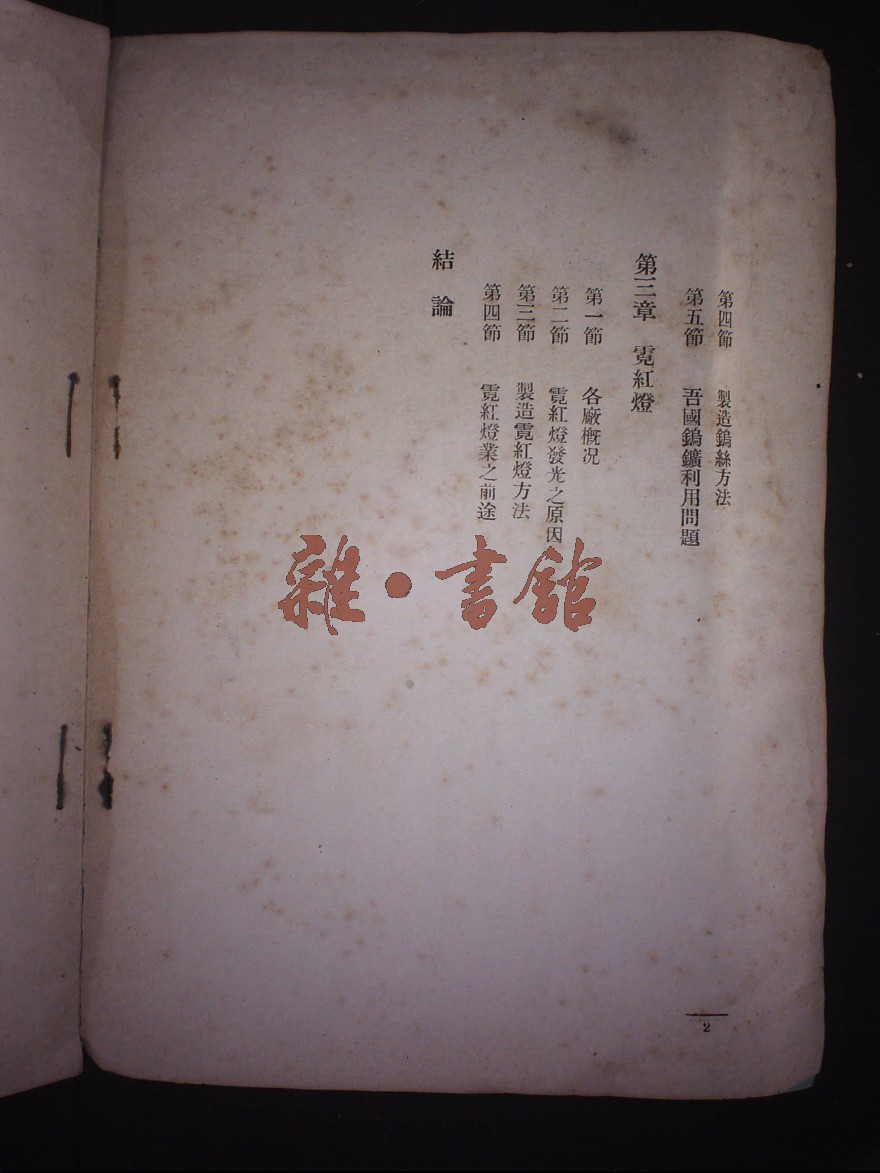 第四節 製造鎢絲方法
第五節 吾國鎢鑛利用問題
第三章 霓紅燈
第一節 各廠概况
第二節 霓紅燈發光之原因
第三節 製造霓紅燈方法
第四節 霓紅燈業之前途
結論
雜·書館
2